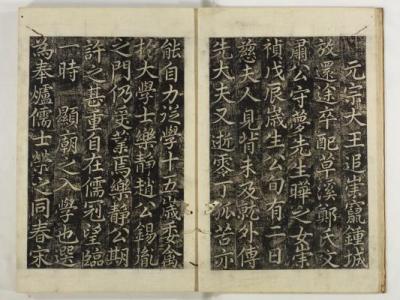 元宗大王追崇竄鍾城
放還途卒配草溪鄭氏文
肅公守夢先生曄之女崇
禎戊辰歲生公旬有二日
慈夫人見背未及就外傅
先大夫又逝零丁孤苦亦
能自力從學十五歲委禽
於大學士樂靜趙公錫胤
之門仍受業焉樂靜公期
許之甚重自在儒冠望臨
一時 顯廟之入學也選
為奉爐儒士榮之同春宋